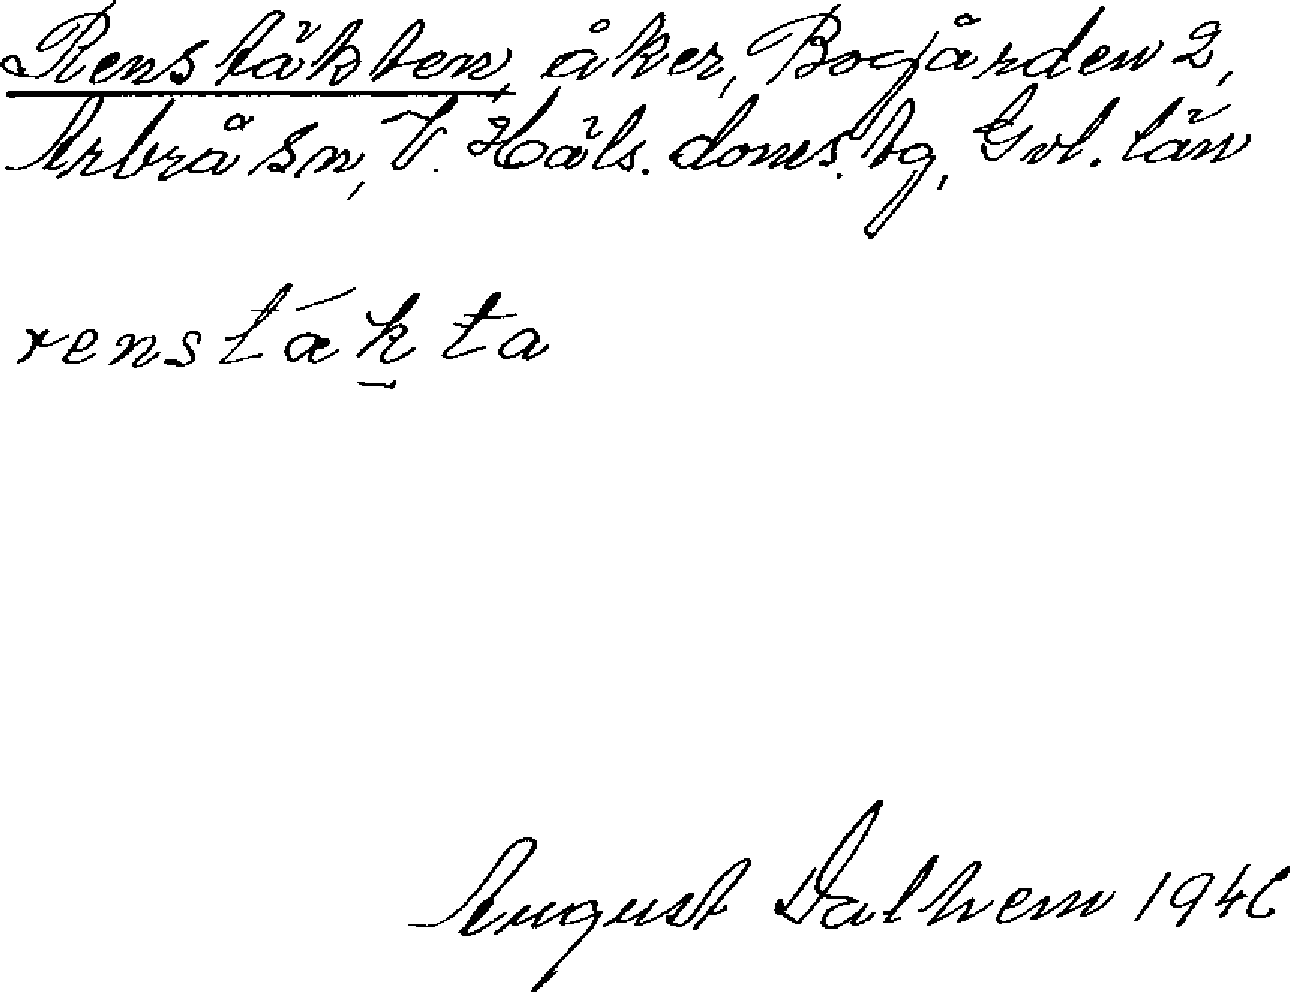 Renstäkten, åker, Bogården 2,
Arbrå sn, V. Häls. doms. tg, Gvl. län
renstákta
August Dalhem 1946